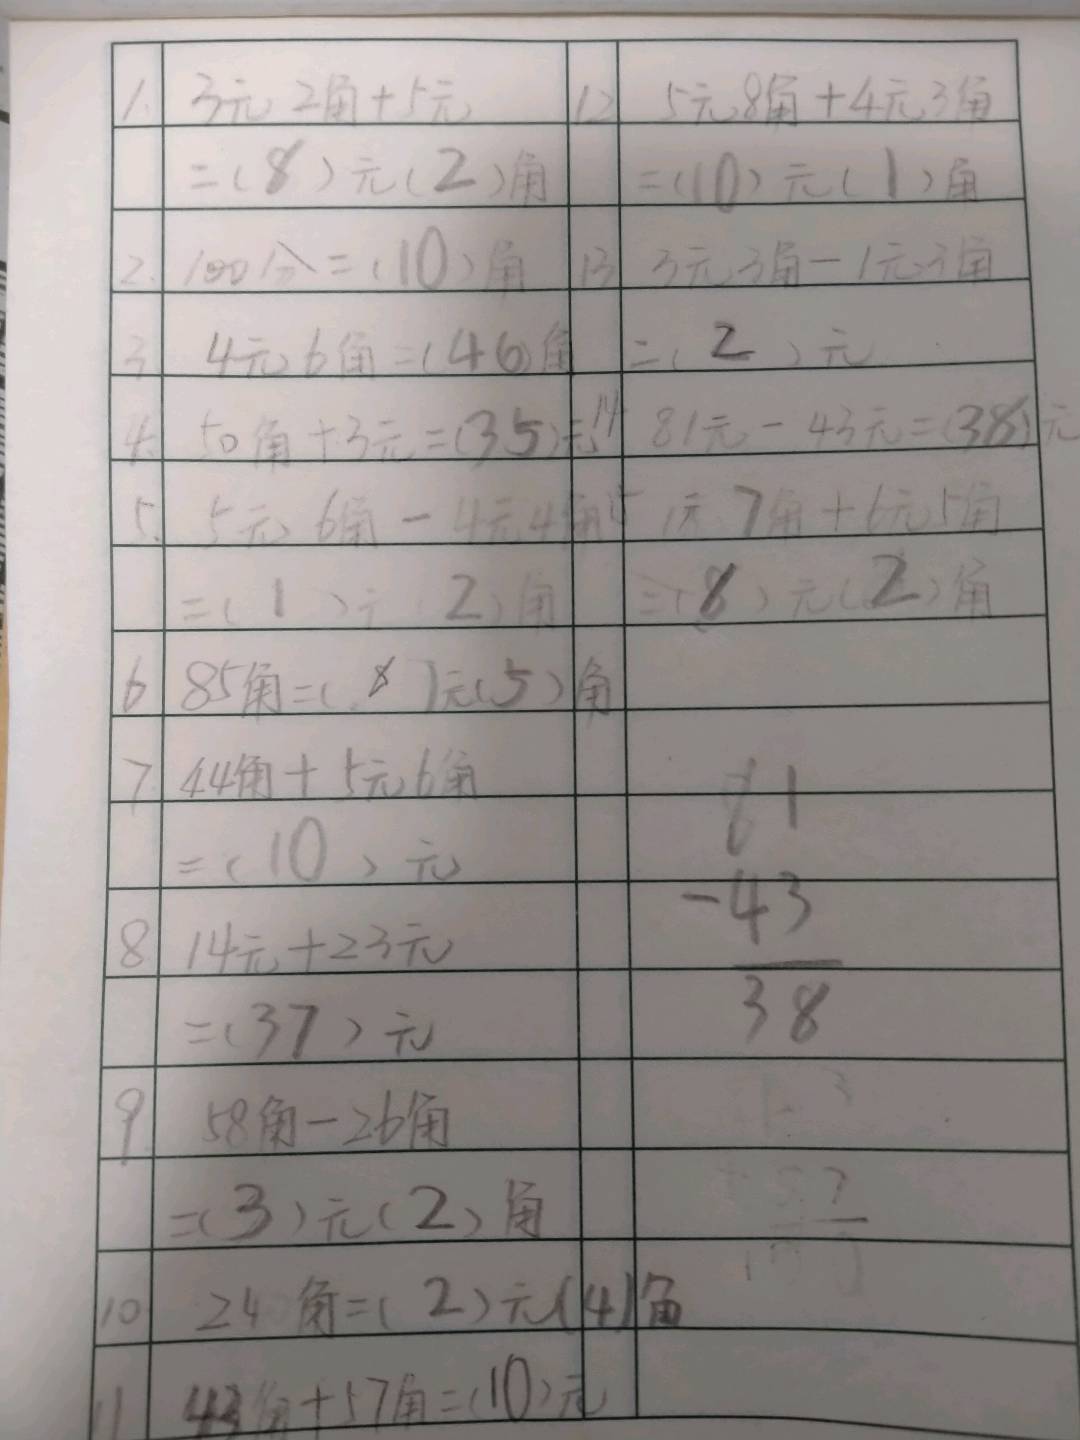 1. 3元2角+5元
=(8)元(2)角
2. 100分=(10)角
3 4元6角=(46)角
4. 50角+3元=(35)元
5. 5元6角-4元4角
=(1)元(2)角
6 85角=(8)元(5)角
7 44角+5元6角
=(10)元
8 14元+23元
=(37)元
9. 58角-26角
=(3)元(2)角
10 24角=(2)元(4)角
11 43角+57角=(10)元
12 5元8角+4元3角
=(10)元(1)角
13 3元3角-1元3角
=(2)元
14 81元-43元=(38)元
15 1元7角+6元5角
=(8)元(2)角
81
-43
38